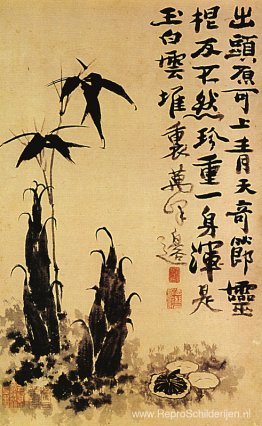 出頭原可上青天奇節靈
根反不然珍重一身渾是
玉白雲堆裏萬峰邊
www.ReproSchilderijen.nl